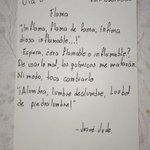 Día
Flama
"Inflama, flama de fama, ínfima
diosa inflamable...!"
Espera, ¿era flamable o inflamable?
De usarlo mal, los químicos me matarán.
Ni modo, toca cambiarlo
"¡Alumbra, lumbre deslumbre, Luzbel
de piedralumbre!"